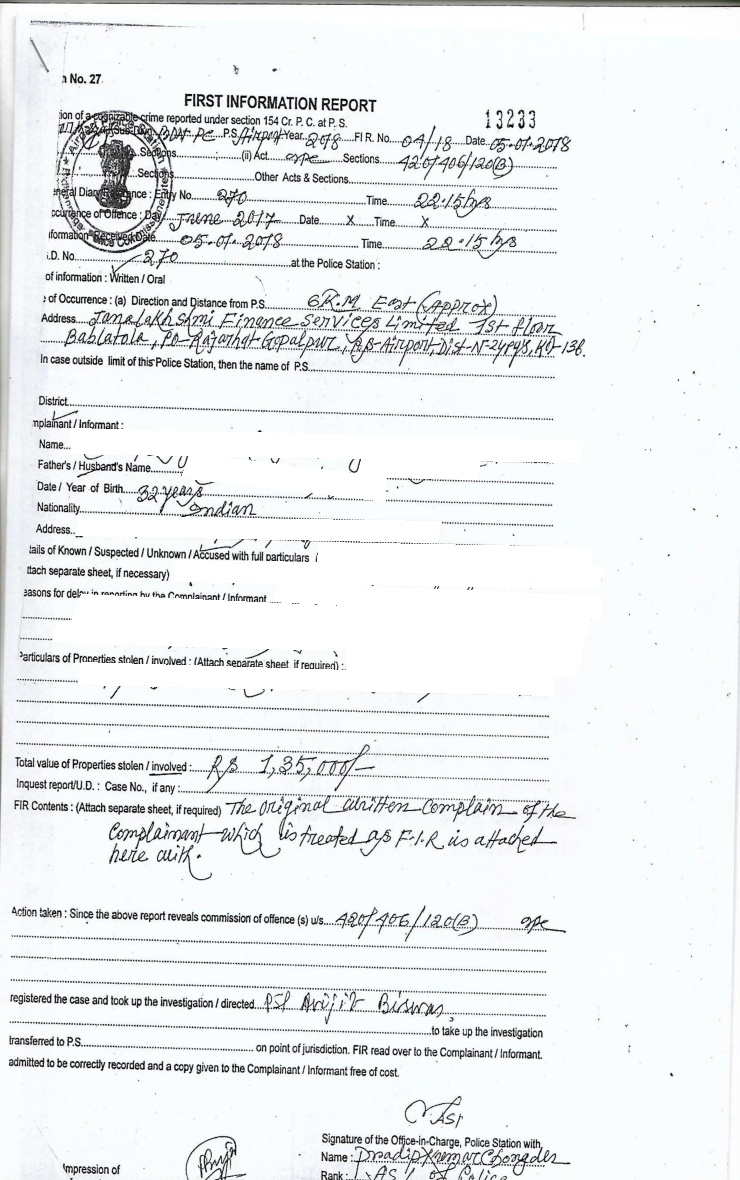 n No. 27
FIRST INFORMATION REPORT
13233
ion of a cognizable crime reported under section 154 Cr. P. C. at P. S.
P.S. Airport Year 2018 FI R. No. 04/18 Date 05.01.2018
Sections (ii) Act Sections 420/406/120(B)
Sections Other Acts & Sections
eneral Diary Reference : Entry No. 270 Time 22.15 hrs
ccurrence of Offence : Day June 2017 Date X Time X
Information Received Date 05.01.2018 Time 22.15 hrs
.D. No. 270 at the Police Station :
of information : Written / Oral
e of Occurrence : (a) Direction and Distance from P.S. 6 K.M East (Approx)
Address Janalakshmi Finance Services Limited 1st floor
Bablatola, Po-Rajarhat Gopalpur, P.S-Airport, Dist-N-24pgs, Kol-136.
In case outside limit of this Police Station, then the name of P.S.
District
mplainant / Informant :
Name...
Father's / Husband's Name
Date / Year of Birth 32 years
Nationality Indian
Address..
tails of Known / Suspected / Unknown / Accused with full particulars
ttach separate sheet, if necessary)
easons for delay in reporting by the Complainant / Informant
Particulars of Properties stolen / involved : (Attach separate sheet, if required) :.
Total value of Properties stolen / involved : RS 1,35,000/-
Inquest report/U.D. : Case No., if any :
FIR Contents : (Attach separate sheet, if required) The original written complain of the
complainant which is treated as F.I.R is attached
here with.
Action taken : Since the above report reveals commission of offence (s) u/s 420/406/120(B)
registered the case and took up the investigation / directed PSI Avijit Biswas,
to take up the investigation
transferred to P.S. on point of jurisdiction. FIR read over to the Complainant / Informant.
admitted to be correctly recorded and a copy given to the Complainant / Informant free of cost.
ASI
Signature of the Office-in-Charge, Police Station with,
Name : Pradip Kumar
Impression of
Rank : ASI of Police